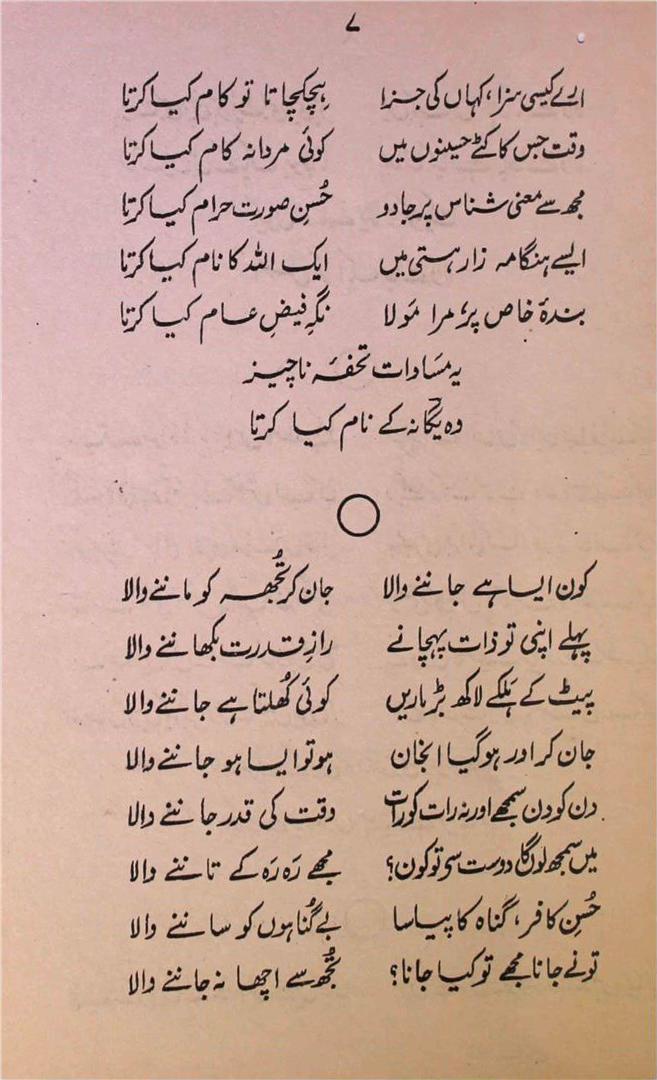 ۷
ارے کیسی سزا، کہاں کی جزا ہچکچاتا تو کام کیا کرتا
وقت جس کا کٹے حسینوں میں کوئی مردانہ کام کیا کرتا
مجھ سے معنی شناس پر جادو حُسنِ صورت حرام کیا کرتا
ایسے ہنگامہ زارِ ہستی میں ایک اللہ کا نام کیا کرتا
بندۂ خاص پر، مرا مَولا نگہِ فیضِ عام کیا کرتا
یہ مساوات تحفۂ ناچیز
وہ یگانہ کے نام کیا کرتا
کون ایسا ہے جاننے والا جان کر تُجھ کو ماننے والا
پہلے اپنی تو ذات پہچانے رازِ قدرت بکھاننے والا
پیٹ کے ہلکے لاکھ بڑ ماریں کوئی کُھلتا ہے جاننے والا
جان کر اور ہو گیا انجان ہو تو ایسا ہو جاننے والا
دن کو دن سمجھے اور نہ رات کو رات وقت کی قدر جاننے والا
میں سمجھ لوں گا دوست سہی تو کون؟ مجھے رَہ رَہ کے تاننے والا
حُسنِ کافر، گناہ کا پیاسا بے گُناہوں کو ساننے والا
تو نے جانا مجھے تو کیا جانا؟ تُجھ سے اچھا نہ جاننے والا